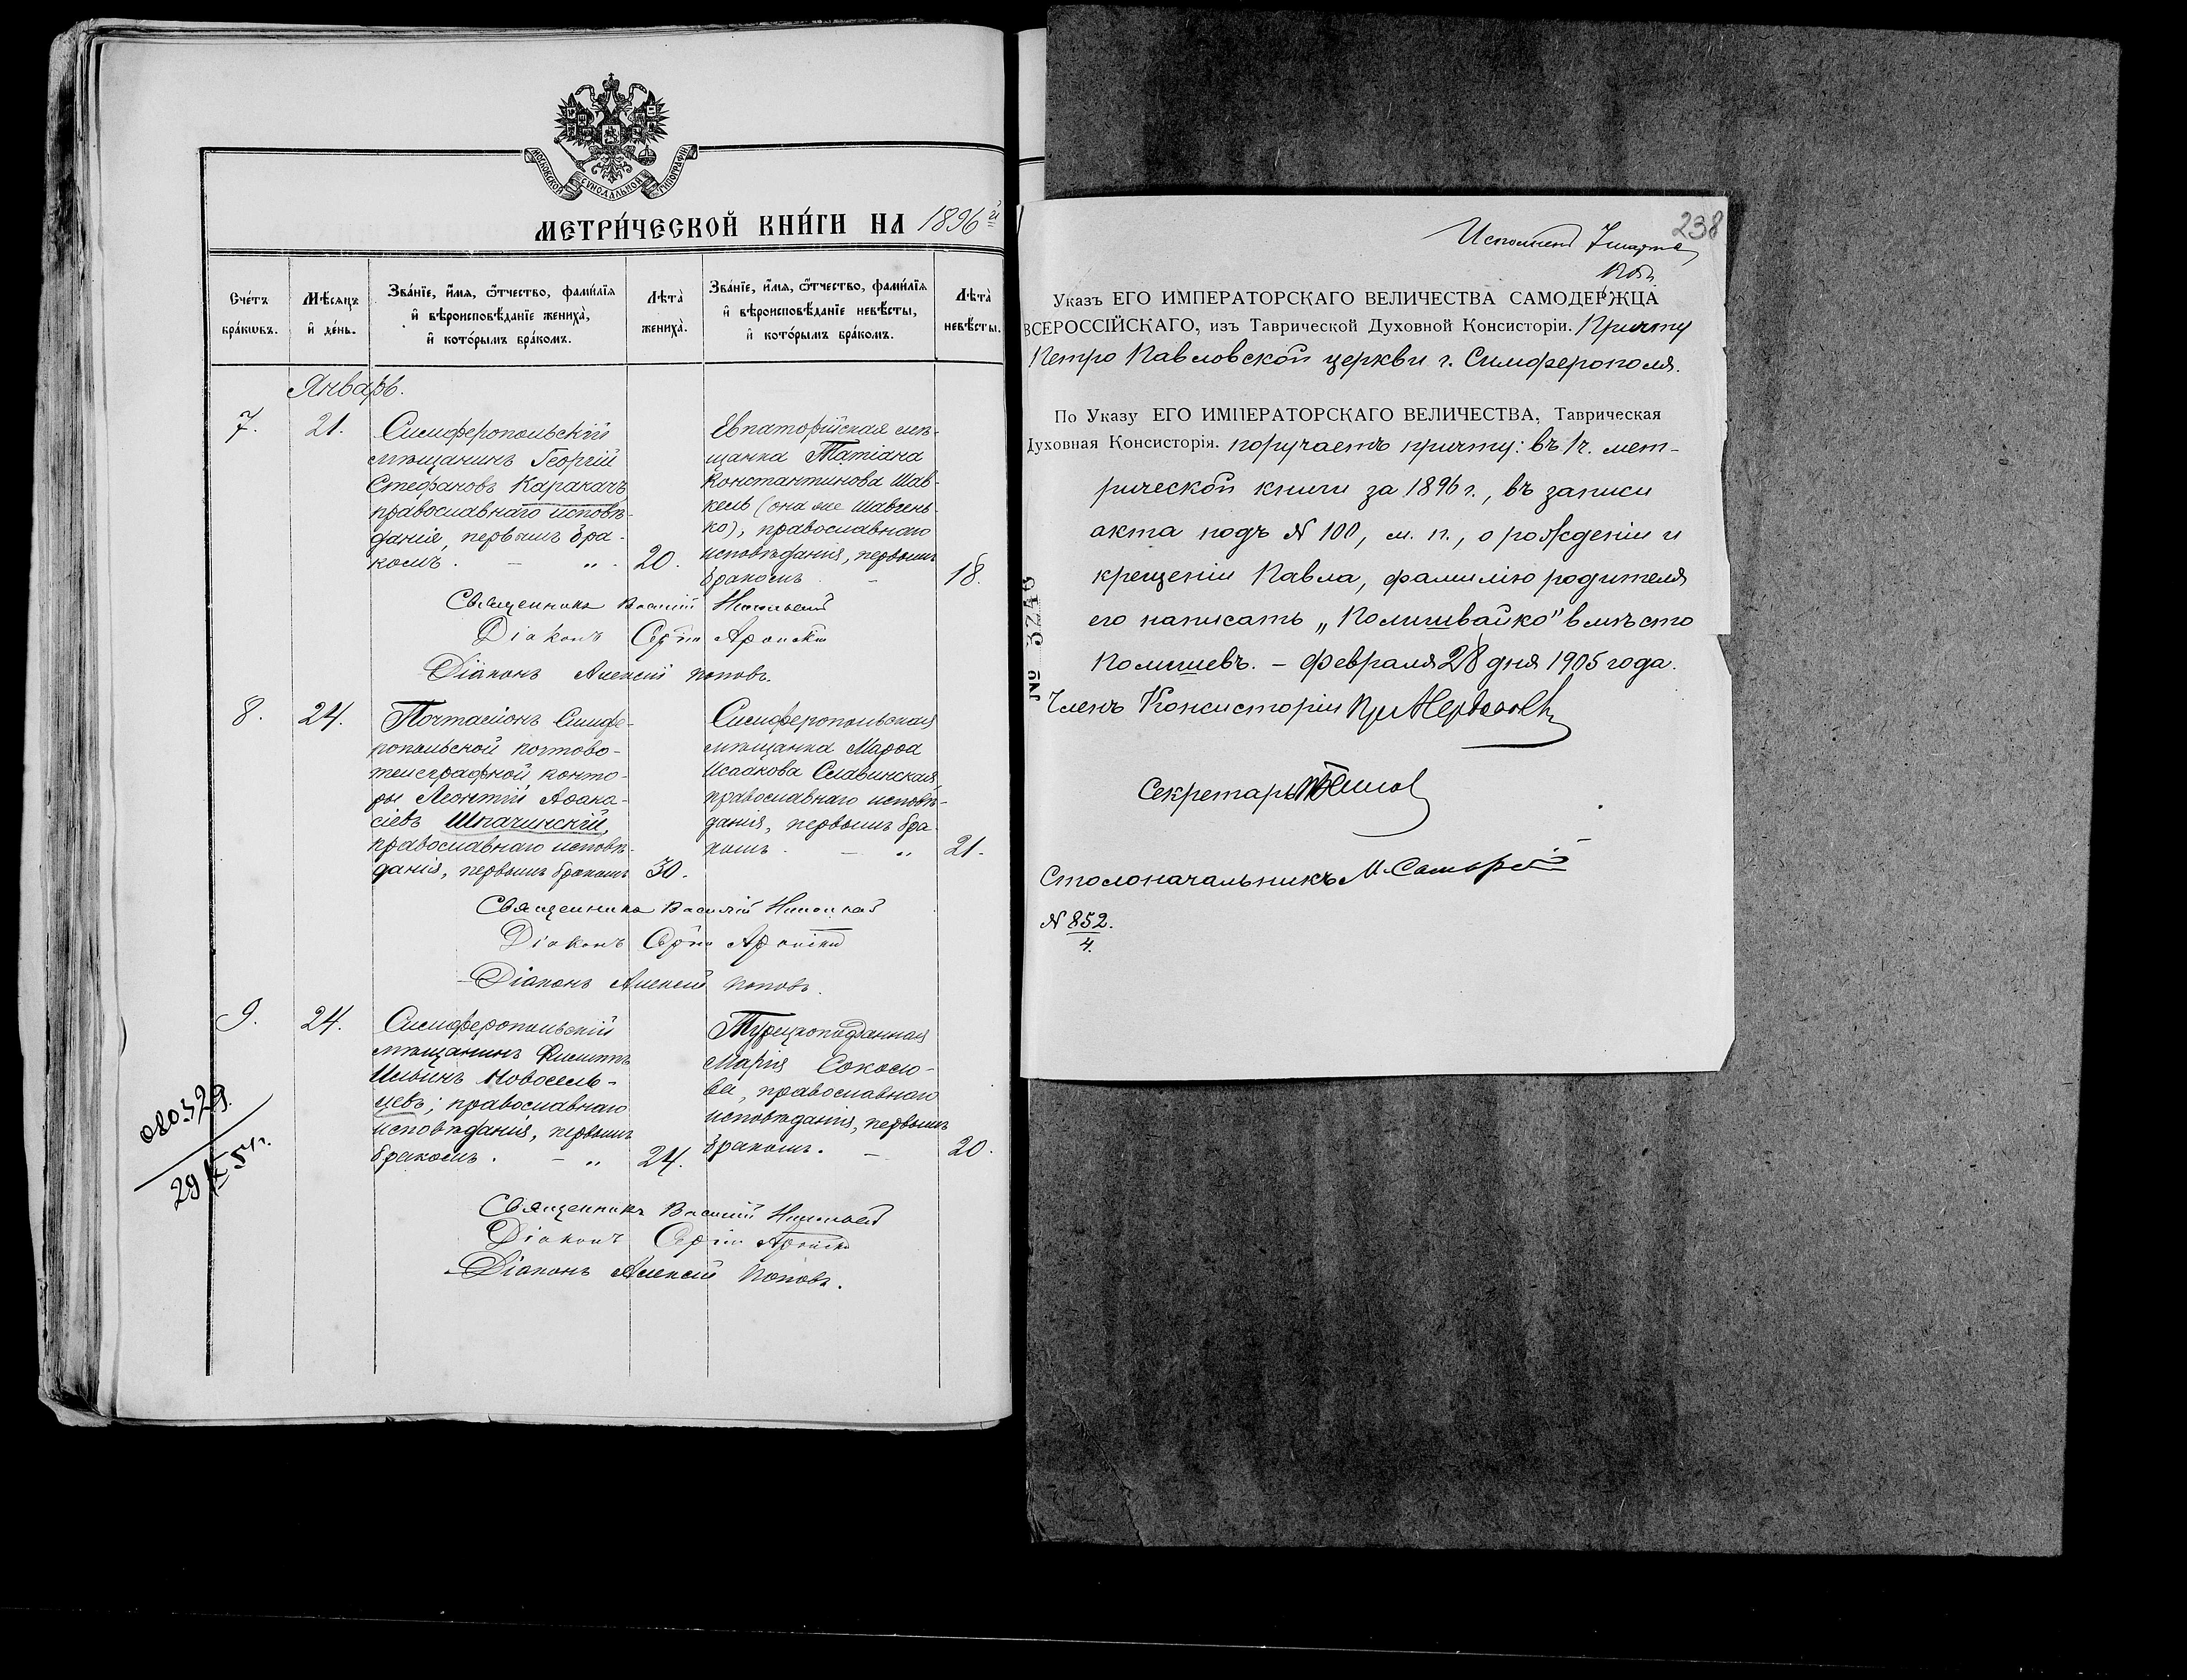 МОСКОВСКОЙ СѴНОДАЛЬНОЙ ТИПОГРАФІИ
МЕТРИ́ЧЕСКОЙ КНИ́ГИ НА 1896 й
Сче́тъ бра́кωвъ.
Мѣ́сяцъ и҆ де́нь.
Зва́нїе, и҆́мѧ, ѻ҆́тчество, фами́лїѧ
и҆ вѣроисповѣ́данїе жениха̀,
и҆ кото́рымъ бра́комъ.
Лѣта̀ жениха̀.
Зва́нїе, и҆́мѧ, ѻ҆́тчество, фами́лїѧ
и҆ вѣроисповѣ́данїе невѣ́сты,
и҆ кото́рымъ бра́комъ.
Лѣта̀ невѣ́сты.
Январь.
7.
21.
Симферопольскій
мѣщанинъ Георгій
Стефановъ Каракачъ
православнаго исповѣ-
данія, первымъ бра-
комъ. - „ .
20.
Евпаторійская мѣ-
щанка Татіана
Константинова Шав-
кель (она же Шавгень-
ко), православнаго
исповѣданія, первымъ
бракомъ -
18.
Священникъ Василій
Діаконъ Сергій
Діаконъ Алексій Поповъ.
8.
24.
Почталіонъ Симфе-
ропольской почтово-
телеграфной конто-
ры Леонтій Аѳана-
сіевъ Шпачинскій,
православнаго исповѣ-
данія, первымъ бракомъ
30.
Симферопольская
мѣщанка Марѳа
Исаакова Славинская,
православнаго исповѣ-
данія, первымъ бра-
комъ. - „
21.
Священникъ Василій
Діаконъ Сергій
Діаконъ Алексій Поповъ.
9.
24.
Симферопольскій
мѣщанинъ Филиппъ
Ильинъ Новосель-
цевъ; православнаго
исповѣданія, первымъ
бракомъ. - „
24.
Турецкоподданная
Марія Соколо-
ва, православнаго
исповѣданія, первымъ
бракомъ. -
20.
Священникъ Василій
Діаконъ Сергій
Діаконъ Алексій Поповъ.
080329
29/IX 54г.
238
Исполненъ 7 марта
Указъ ЕГО ИМПЕРАТОРСКАГО ВЕЛИЧЕСТВА САМОДЕРЖЦА
ВСЕРОССІЙСКАГО, изъ Таврической Духовной Консисторіи. Причту
Петро Павловской церкви г. Симферополя.
По Указу ЕГО ИМПЕРАТОРСКАГО ВЕЛИЧЕСТВА, Таврическая
Духовная Консисторія. поручаетъ причту: въ 1 ч. мет-
рической книги за 1896 г., въ записи
акта подъ N 100, м. п., о рожденіи и
крещеніи Павла, фамилію родителя
его написать „Полишвайко" вмѣсто
Полишевъ. - Февраля 28 дня 1905 года.
Членъ Консисторіи
Секретарь
Столоначальникъ М.
N 852.
4.
№ 3249